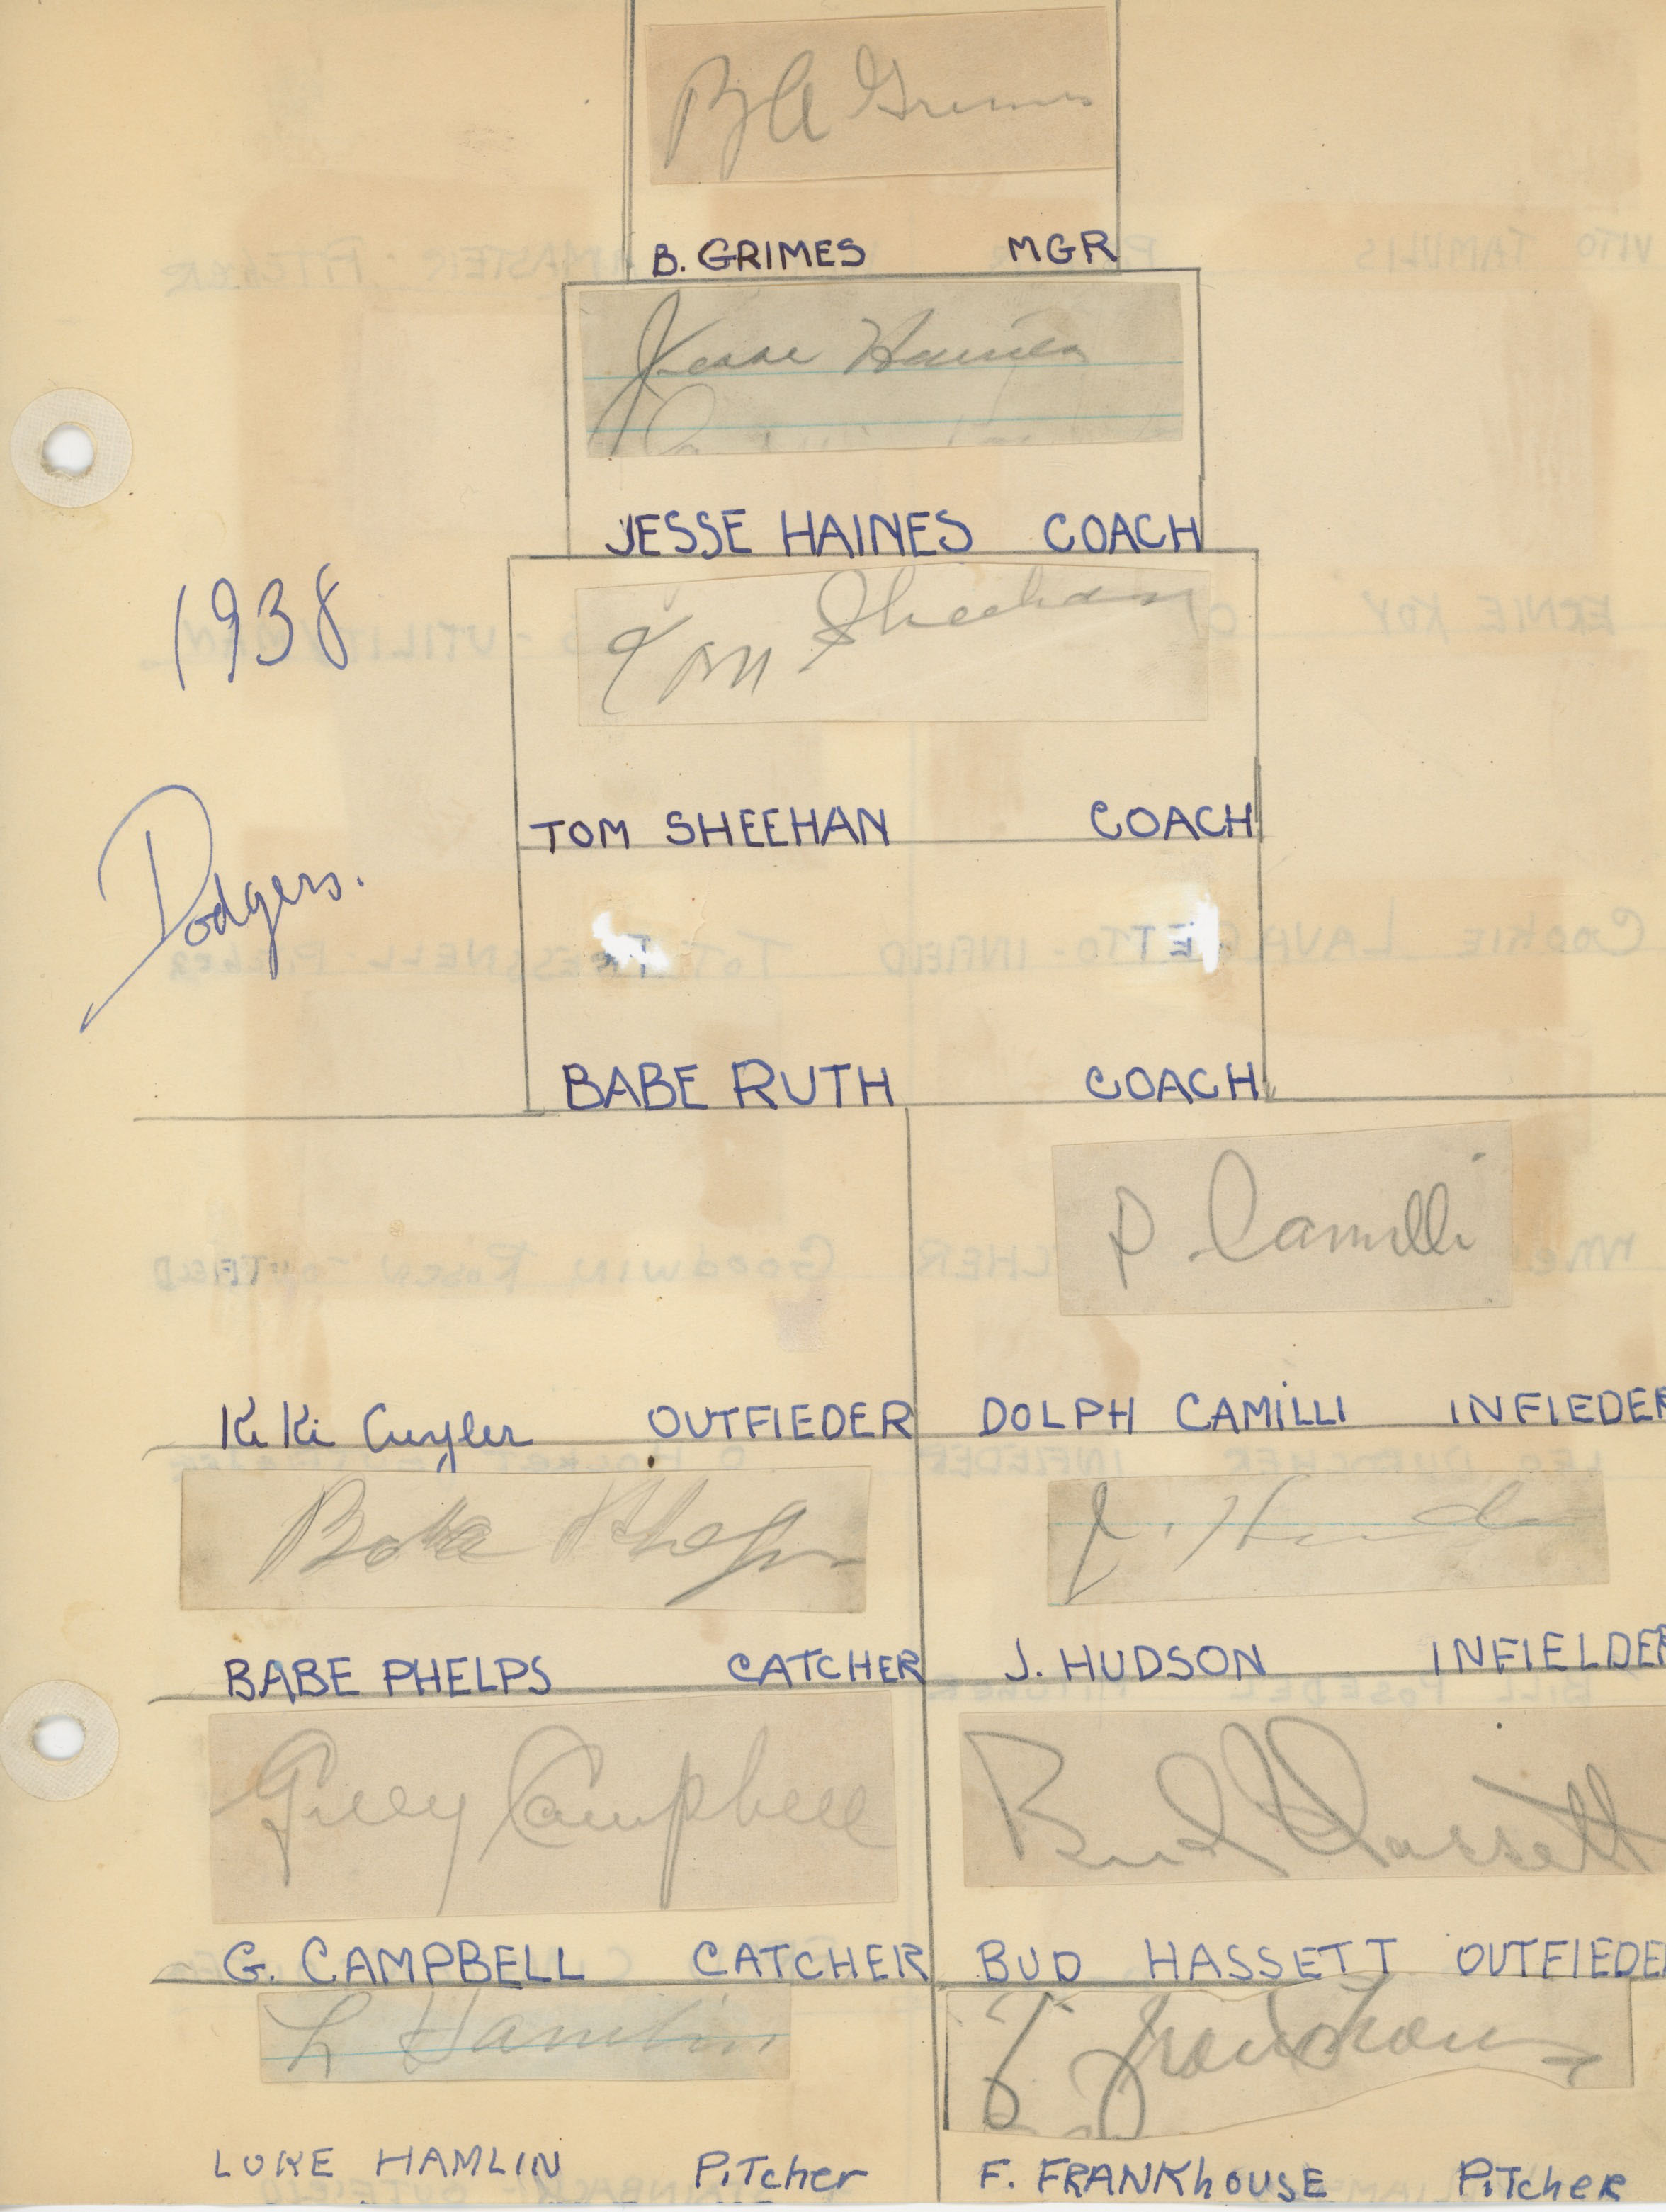 B A Grimes
B. GRIMES MGR
Jesse Haines
JESSE HAINES COACH
1938
Tom Sheehan
TOM SHEEHAN COACH
Dodgers.
BABE RUTH COACH
D. Camilli
KiKi Cuyler OUTFIEDER DOLPH CAMILLI INFIEDER
Babe Phelps J. Hudson
BABE PHELPS CATCHER J. HUDSON INFIELDER
Gilly Campbell Bud Hassett
G. CAMPBELL CATCHER BUD HASSETT OUTFIEDE
L Hamlin F Frankhouse
LUKE HAMLIN PiTcher F. FRANKhOUSE PiTcheR